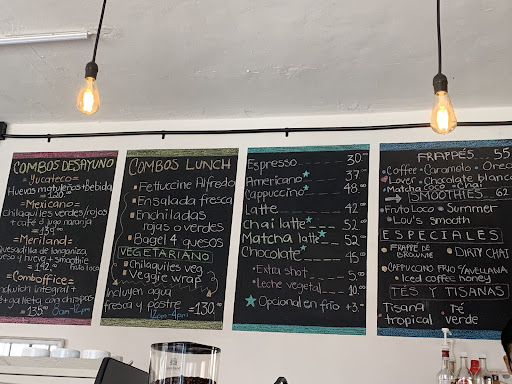 COMBOS DESAYUNO
= Yucateco =
Huevos motuleños + bebida
= Mexicano =
Chilaquiles verdes/rojos
+ café o jugo naranja
= 139.00 =
= Meriland =
Quesadilla de longaniza
huevo y nuevg + smoothie
fruto loco
= Comboffice =
Sandwich integral +
galleta con chispas
= 135.00 8am-12pm
COMBOS LUNCH
• Fettuccine Alfredo
• Ensalada fresca
• Enchiladas
rojas o verdes
• Bagel 4 quesos
VEGETARIANO
• Chilaquiles veg
• Veggie wrap
Incluyen agua
fresca y postre = 130.00
12pm-4pm
Espresso 30.00
Americano 37.00
Cappuccino 48.00
Latte 42.00
chai latte 52.00
Matcha latte 52
Chocolate 45.00
• Extra shot 5.00
• Leche vegetal 10.00
Opcional en frío +3.00
FRAPPÉS 55
• Coffee • Caramelo • Oreo
• Lover • Chocolate blanco
• Matcha coco • Chai
SMOOTHIES 62
• Fruto Loco • Summer
• Lou's Smooth
ESPECIALES
• FRAPPE DE
BROWNIE
• DIRTY CHAI
• CAPPUCCINO FRIO C/AVELLANA
• Iced coffee honey
TÉS Y TISANAS
Tisana
tropical
Té
verde